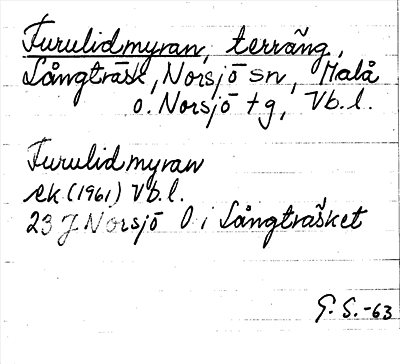 Furulidmyran, terräng,
Långträsk, Norsjö sn, Malå
o. Norsjö tg, Vb.l.
Furulidmyran
ek (1961) Vb.l.
23 J Norsjö O i Långträsket
G. S. -63